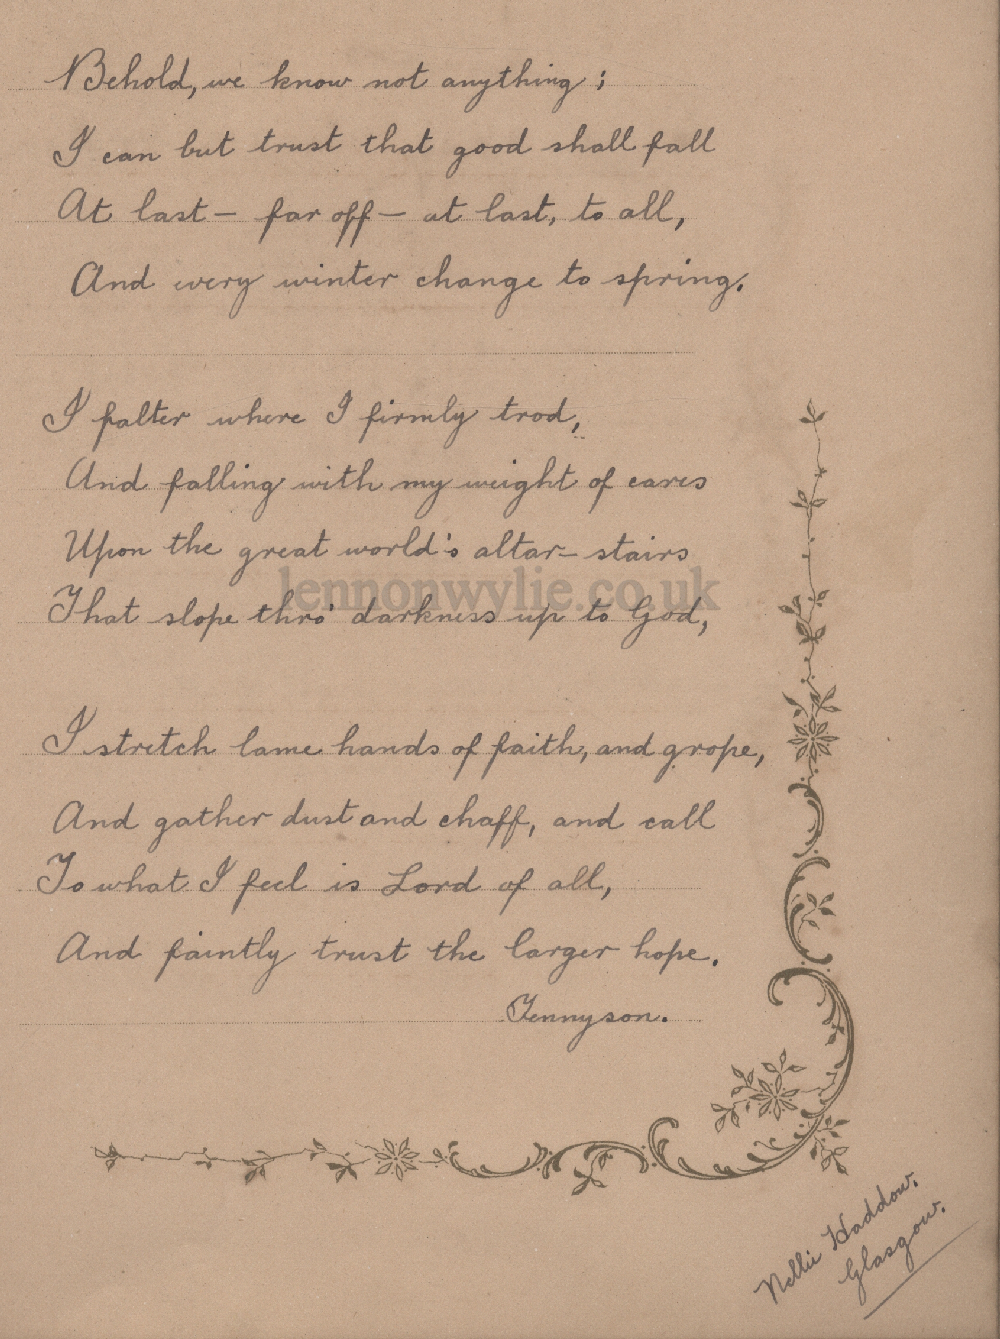 Behold, we know not anything;
I can but trust that good shall fall
At last— far off— at last, to all,
And every winter change to spring.
I falter where I firmly trod,
And falling with my weight of cares
Upon the great world's altar-stairs
lennonwylie.co.uk
That slope thro' darkness up to God,
I stretch lame hands of faith, and grope,
And gather dust and chaff, and call
To what I feel is Lord of all,
And faintly trust the larger hope.
Tennyson.
Nellie Haddow.
Glasgow.